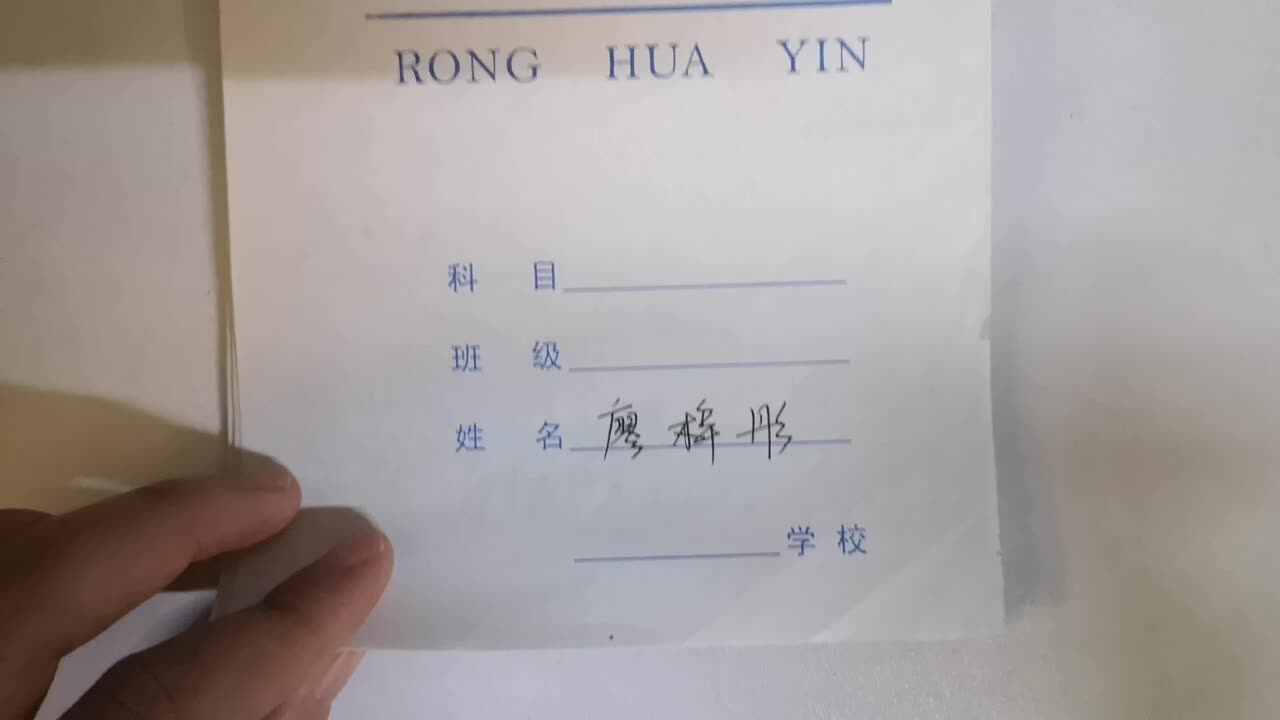 RONG HUA YIN
科 目
班 级
姓 名 廖梓彤
学 校